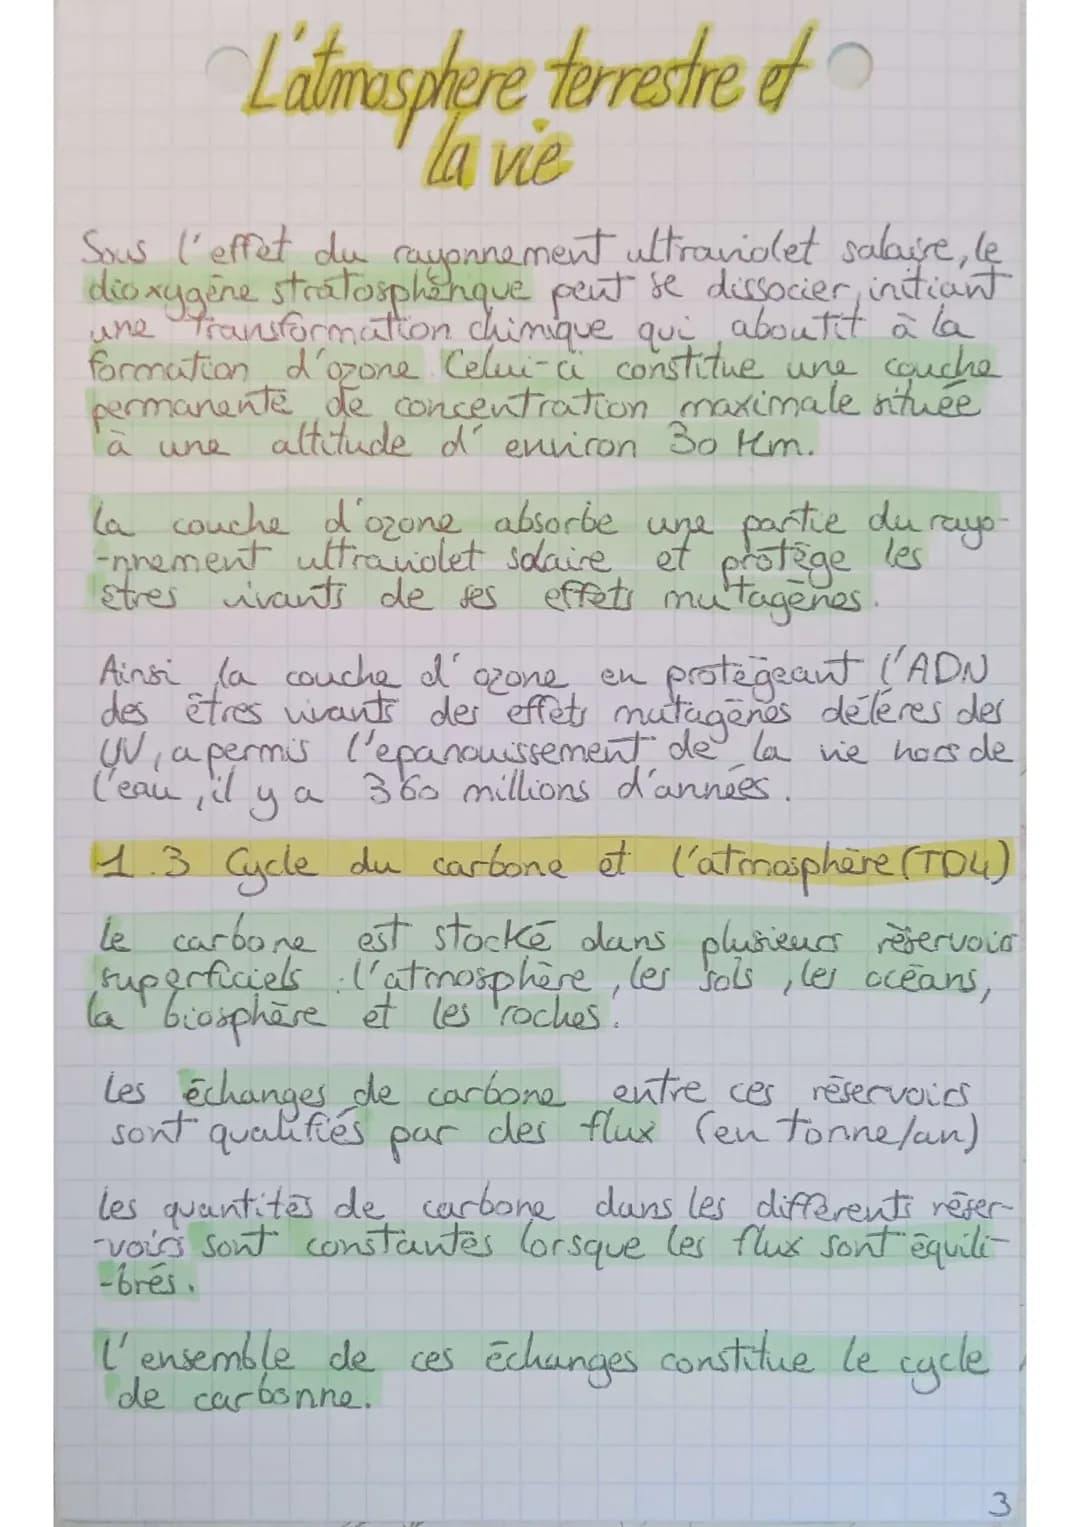 L'atmosphere terrestre et
la vie
Sous l'effet du rayonnement ultraviolet salaire, le
dioxygène stratosphérique peut se dissocier, initiant
une transformation chimique qui aboutit à la
formation d'ozone. Celui-ci constitue une couche
permanente de concentration maximale située
à une altitude d'environ 30 Km.
La couche d'ozone absorbe une partie du rayo-
-nnement ultraviolet solaire et protège les
êtres vivants de ses effets mutagènes.
Ainsi la couche d'ozone en protégeant l'ADN
des êtres vivants des effets mutagènes délères des
UV, a permis l'epanouissement de la vie hors de
l'eau, il y a 360 millions d'années.
1.3 Cycle du carbone et l'atmosphère (TD4)
Le carbone est stocké dans plusieurs réservoir
superficiels : l'atmosphère, les sols, les océans,
la biosphère et les roches.
Les échanges de carbone entre ces réservoirs
sont qualifiés par des flux (en tonne/an)
Les quantités de carbone dans les différents réser-
-voirs sont constantes lorsque les flux sont équili-
-brés.
L'ensemble de ces échanges constitue le cycle
de carbonne.
3